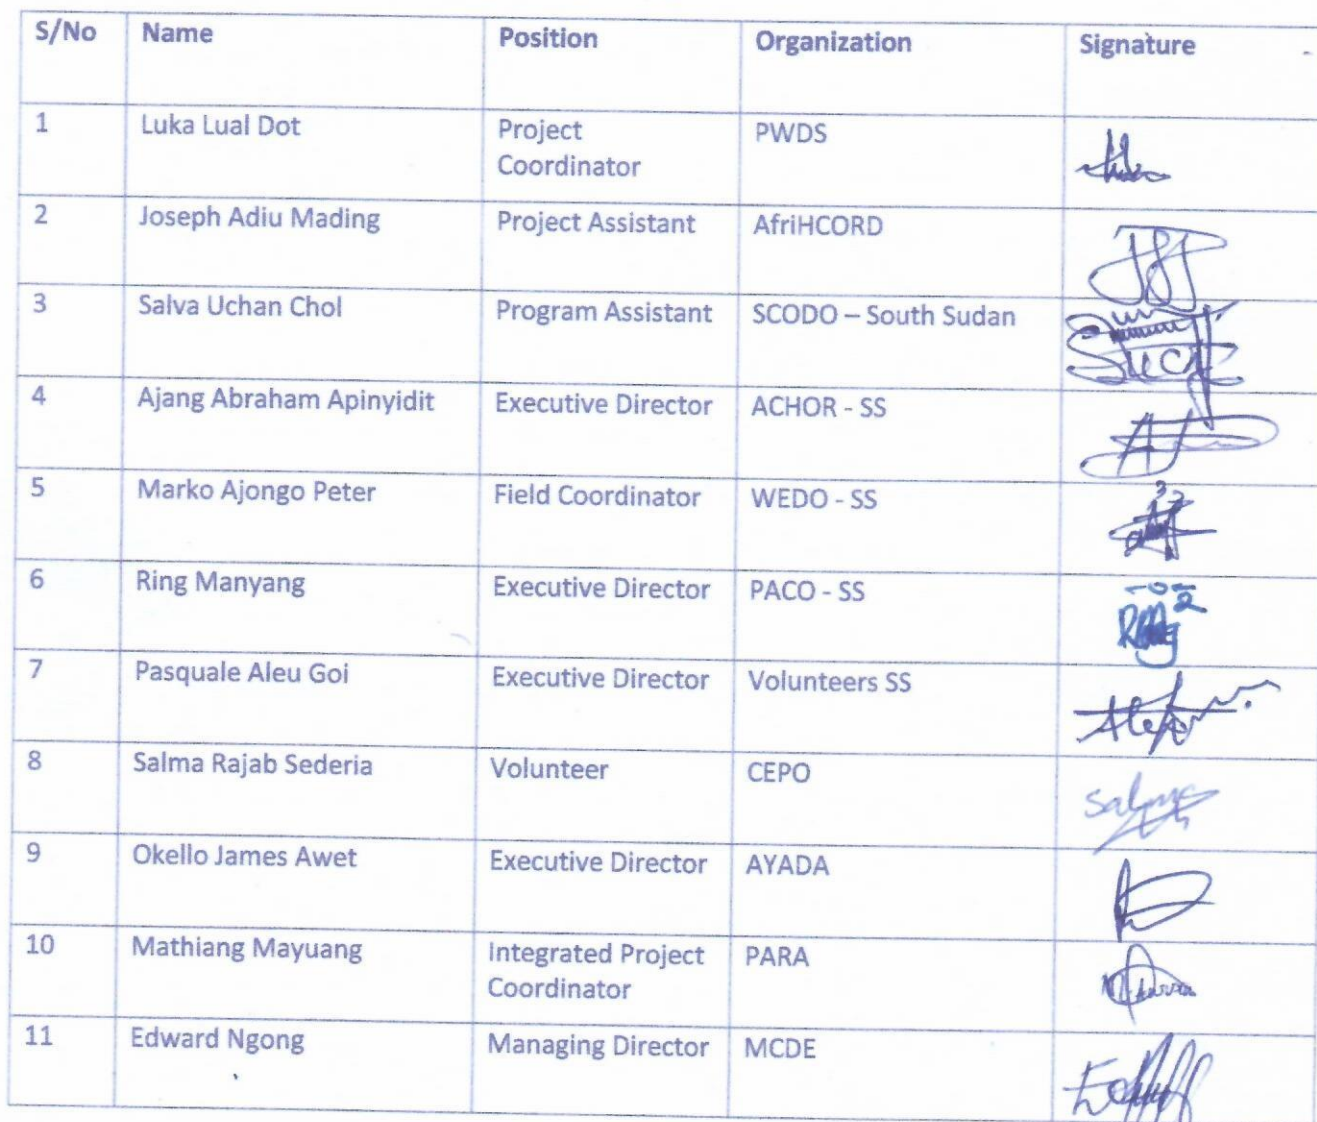 S/No Name Position Organization Signature
1 Luka Lual Dot Project PWDS
Coordinator
2 Joseph Adiu Mading Project Assistant AfriHCORD
3 Salva Uchan Chol Program Assistant SCODO – South Sudan
4 Ajang Abraham Apinyidit Executive Director ACHOR - SS
5 Marko Ajongo Peter Field Coordinator WEDO - SS
6 Ring Manyang Executive Director PACO - SS
7 Pasquale Aleu Goi Executive Director Volunteers SS
8 Salma Rajab Sederia Volunteer CEPO Salma
9 Okello James Awet Executive Director AYADA
10 Mathiang Mayuang Integrated Project PARA
Coordinator
11 Edward Ngong Managing Director MCDE